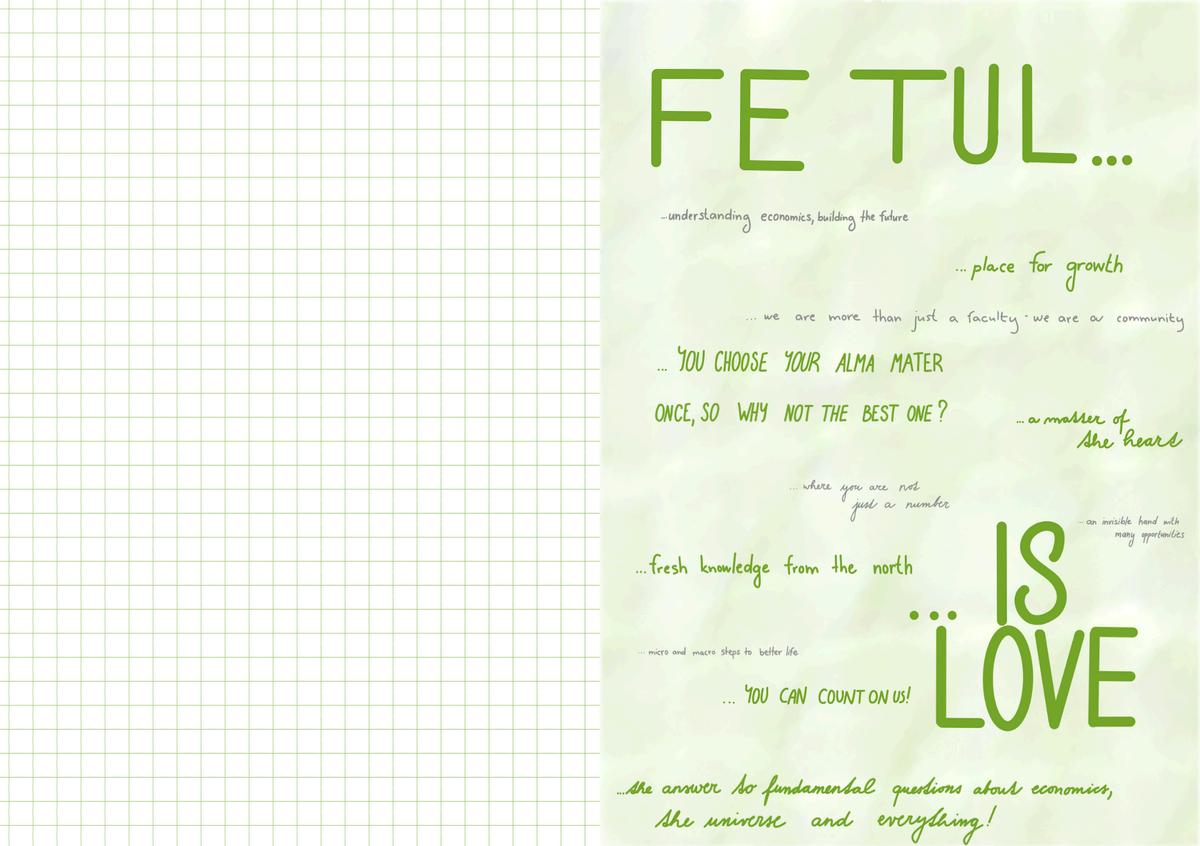 FE TUL...
...understanding economics, building the future
...place for growth
...we are more than just a faculty - we are a community
...YOU CHOOSE YOUR ALMA MATER
ONCE, SO WHY NOT THE BEST ONE?
...a matter of
the heart
...where you are not
just a number
...an invisible hand with
many opportunities
...IS
LOVE
...fresh knowledge from the north
...micro and macro steps to better life
...YOU CAN COUNT ON US!
...the answer to fundamental questions about economics,
the universe and everything!